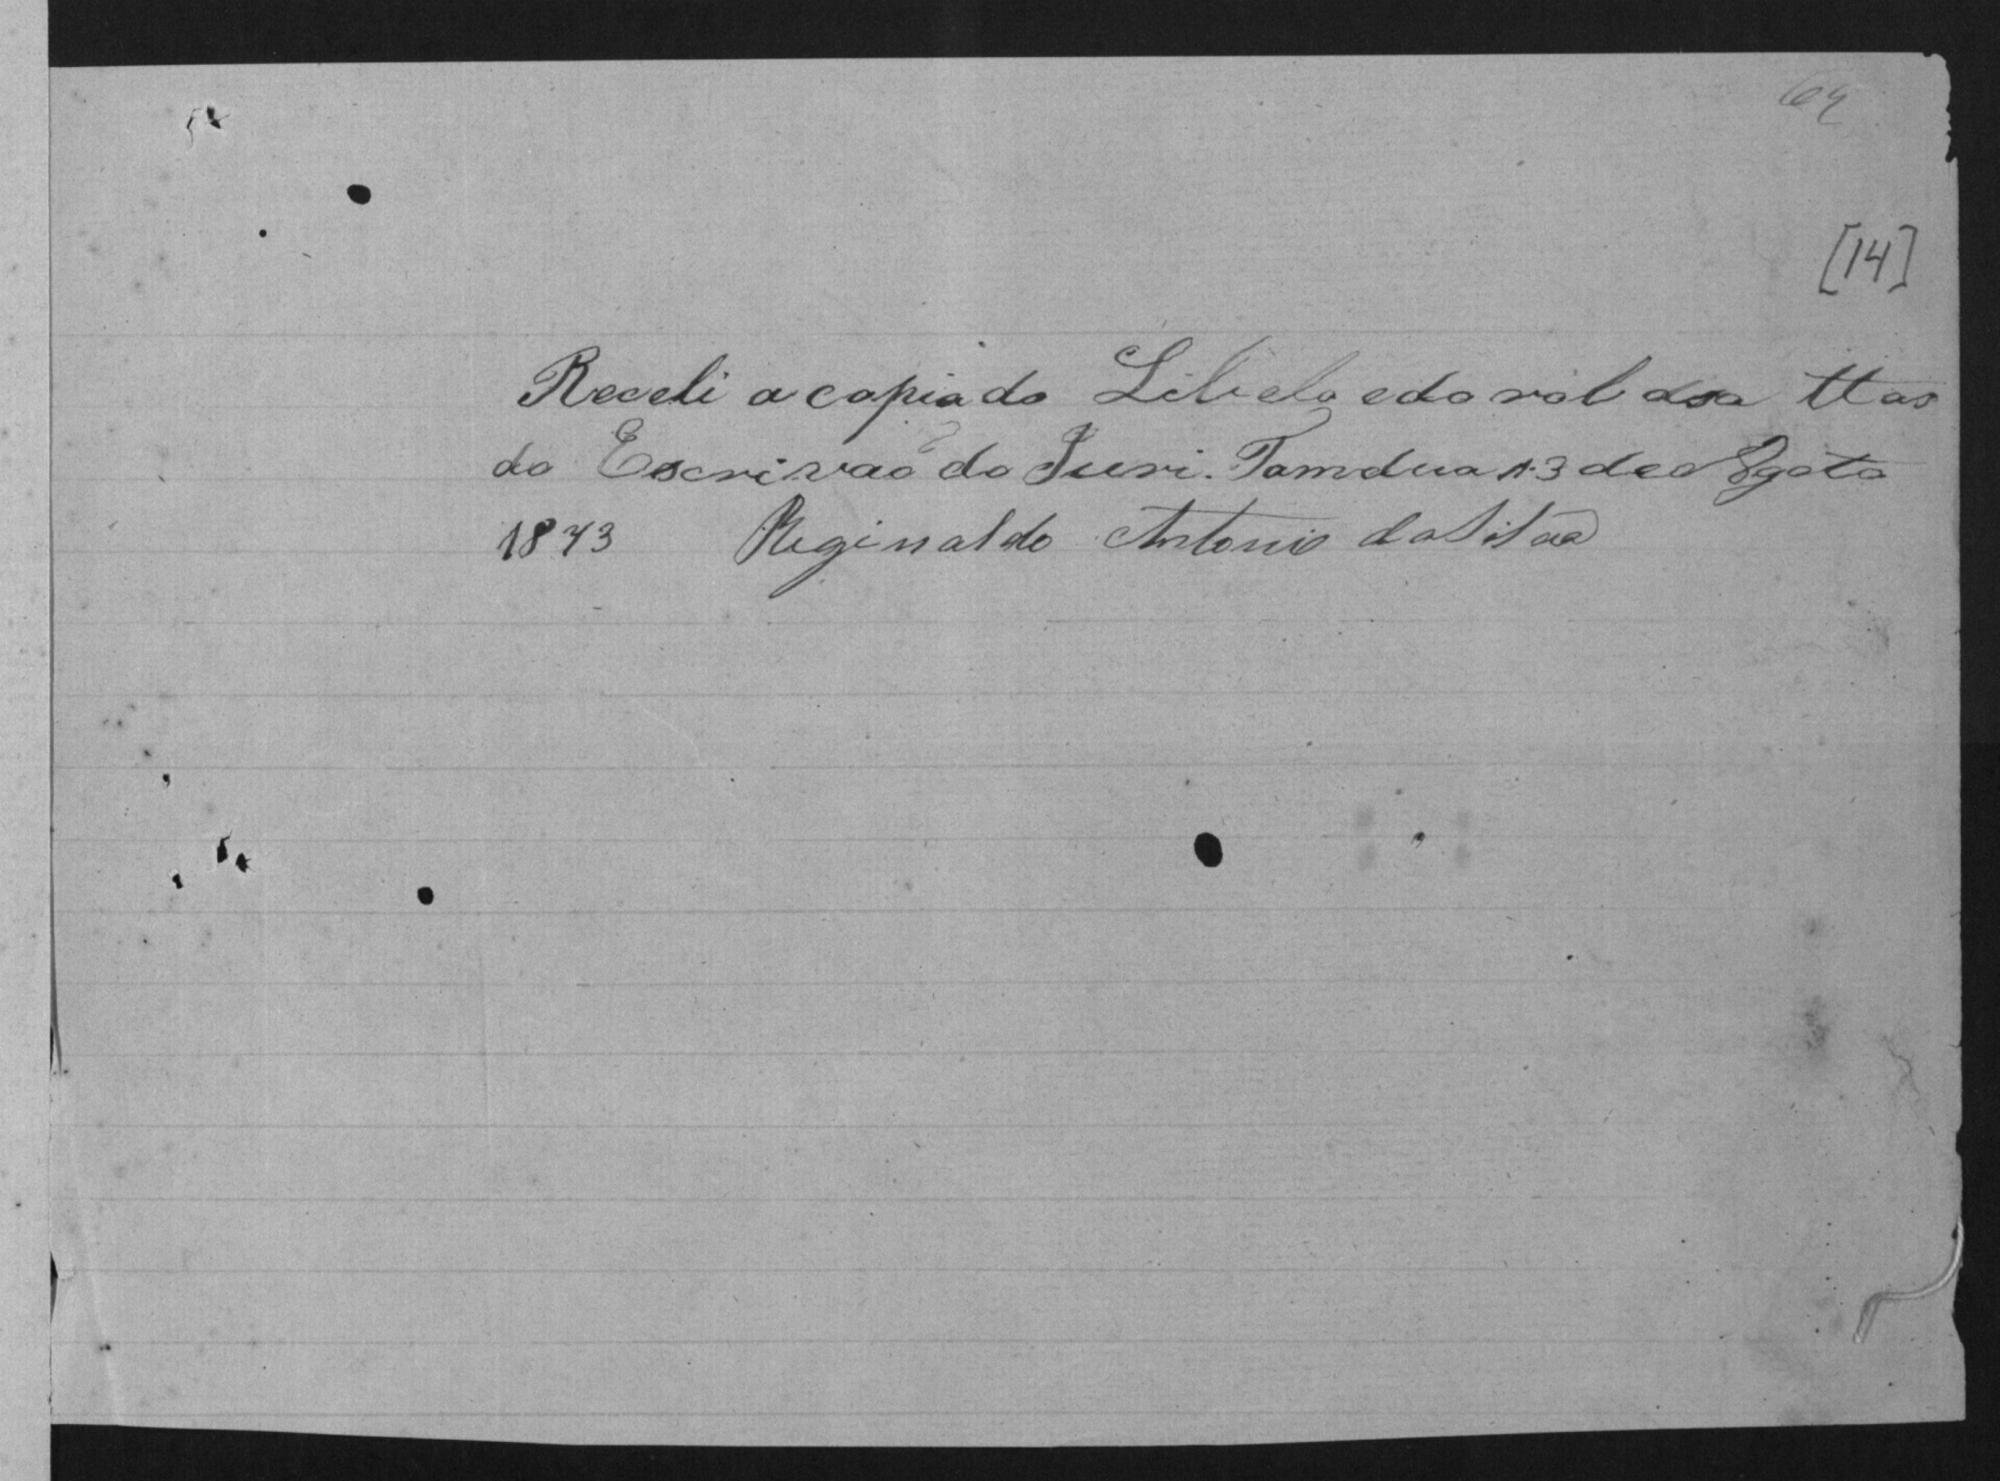 64
[14]
Receli a copia do Libelo e do rol dsa ttas
do Escrivaõ do Juri. Tamdua 13 de Agoto
1873 Reginaldo Antonio da Silva